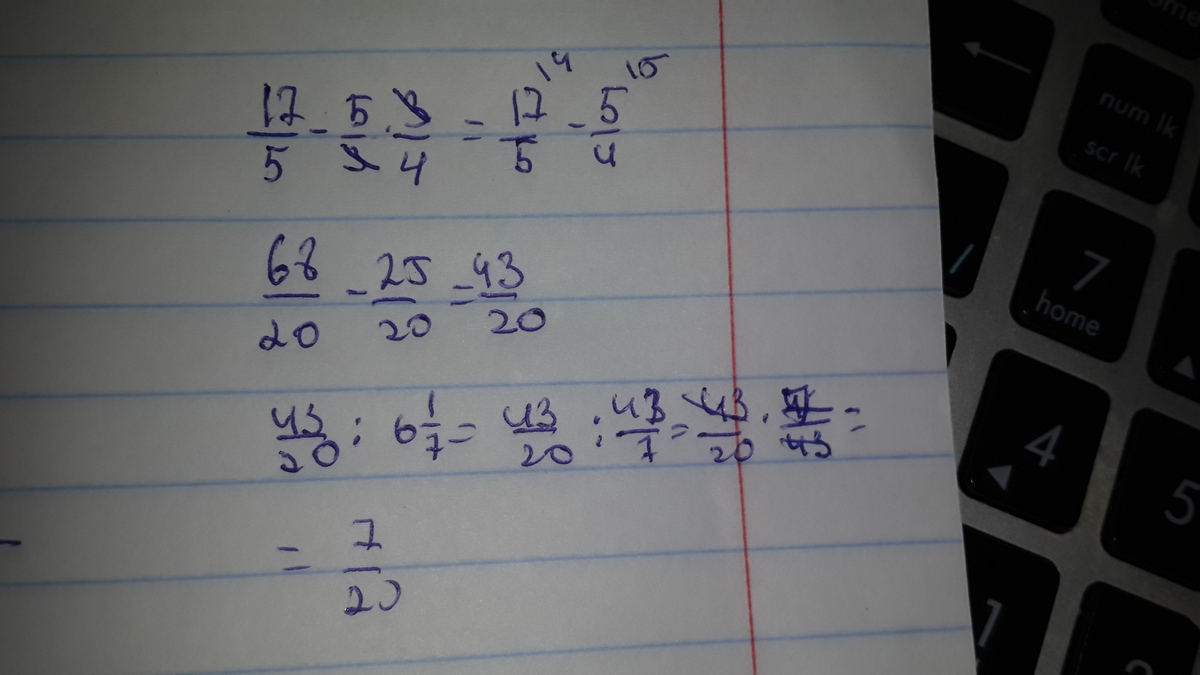 17/5 - 5/9 · 9/4 = 17/5 ^14 - 5/4 ^15
68/20 - 25/20 = 43/20
43/20 : 6 1/7 = 43/20 : 43/7 = 43/20 · 7/43 =
= 7/20
←
num lk
scr lk
/
7
home
4
◀
5
1